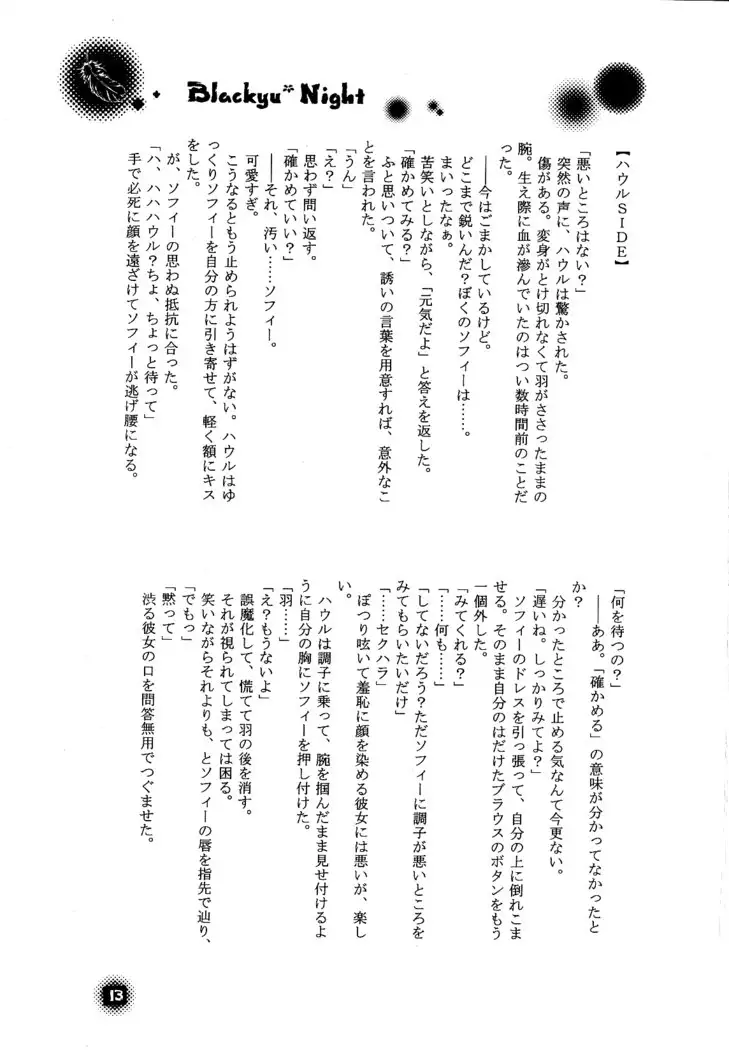 Blackyu Night
【ハウルSIDE】
「悪いところはない?」
突然の声に、ハウルは驚かされた。
傷がある。変身がとけ切れなくて羽がささったままの
腕。生え際に血が滲んでいたのはつい数時間前のことだ
った。
――今はごまかしているけど。
どこまで鋭いんだ?ぼくのソフィーは……。
まいったなぁ。
苦笑いとしながら、「元気だよ」と答えを返した。
「確かめてみる?」
ふと思いついて、誘いの言葉を用意すれば、意外なこ
とを言われた。
「うん」
「え?」
思わず問い返す。
「確かめていい?」
――それ、汚い……ソフィー。
可愛すぎ。
こうなるともう止められようはずがない。ハウルはゆ
っくりソフィーを自分の方に引き寄せて、軽く額にキス
をした。
が、ソフィーの思わぬ抵抗に合った。
「ハ、ハハハウル?ちょ、ちょっと待って」
手で必死に顔を遠ざけてソフィーが逃げ腰になる。
「何を待つの?」
――ああ。「確かめる」の意味が分かってなかったと
か?
分かったところで止める気なんて今更ない。
「遅いね。しっかりみてよ?」
ソフィーのドレスを引っ張って、自分の上に倒れこま
せる。そのまま自分のはだけたブラウスのボタンをもう
一個外した。
「みてくれる?」
「……何も……」
「してないだろう?ただソフィーに調子が悪いところを
みてもらいたいだけ」
「……セクハラ」
ぽつり呟いて羞恥に顔を染める彼女には悪いが、楽し
い。
ハウルは調子に乗って、腕を掴んだまま見せ付けるよ
うに自分の胸にソフィーを押し付けた。
「羽……」
「え?もうないよ」
誤魔化して、慌てて羽の後を消す。
それが視られてしまっては困る。
笑いながらそれよりも、とソフィーの唇を指先で辿り、
「でもっ」
「黙って」
渋る彼女の口を問答無用でつぐませた。
13